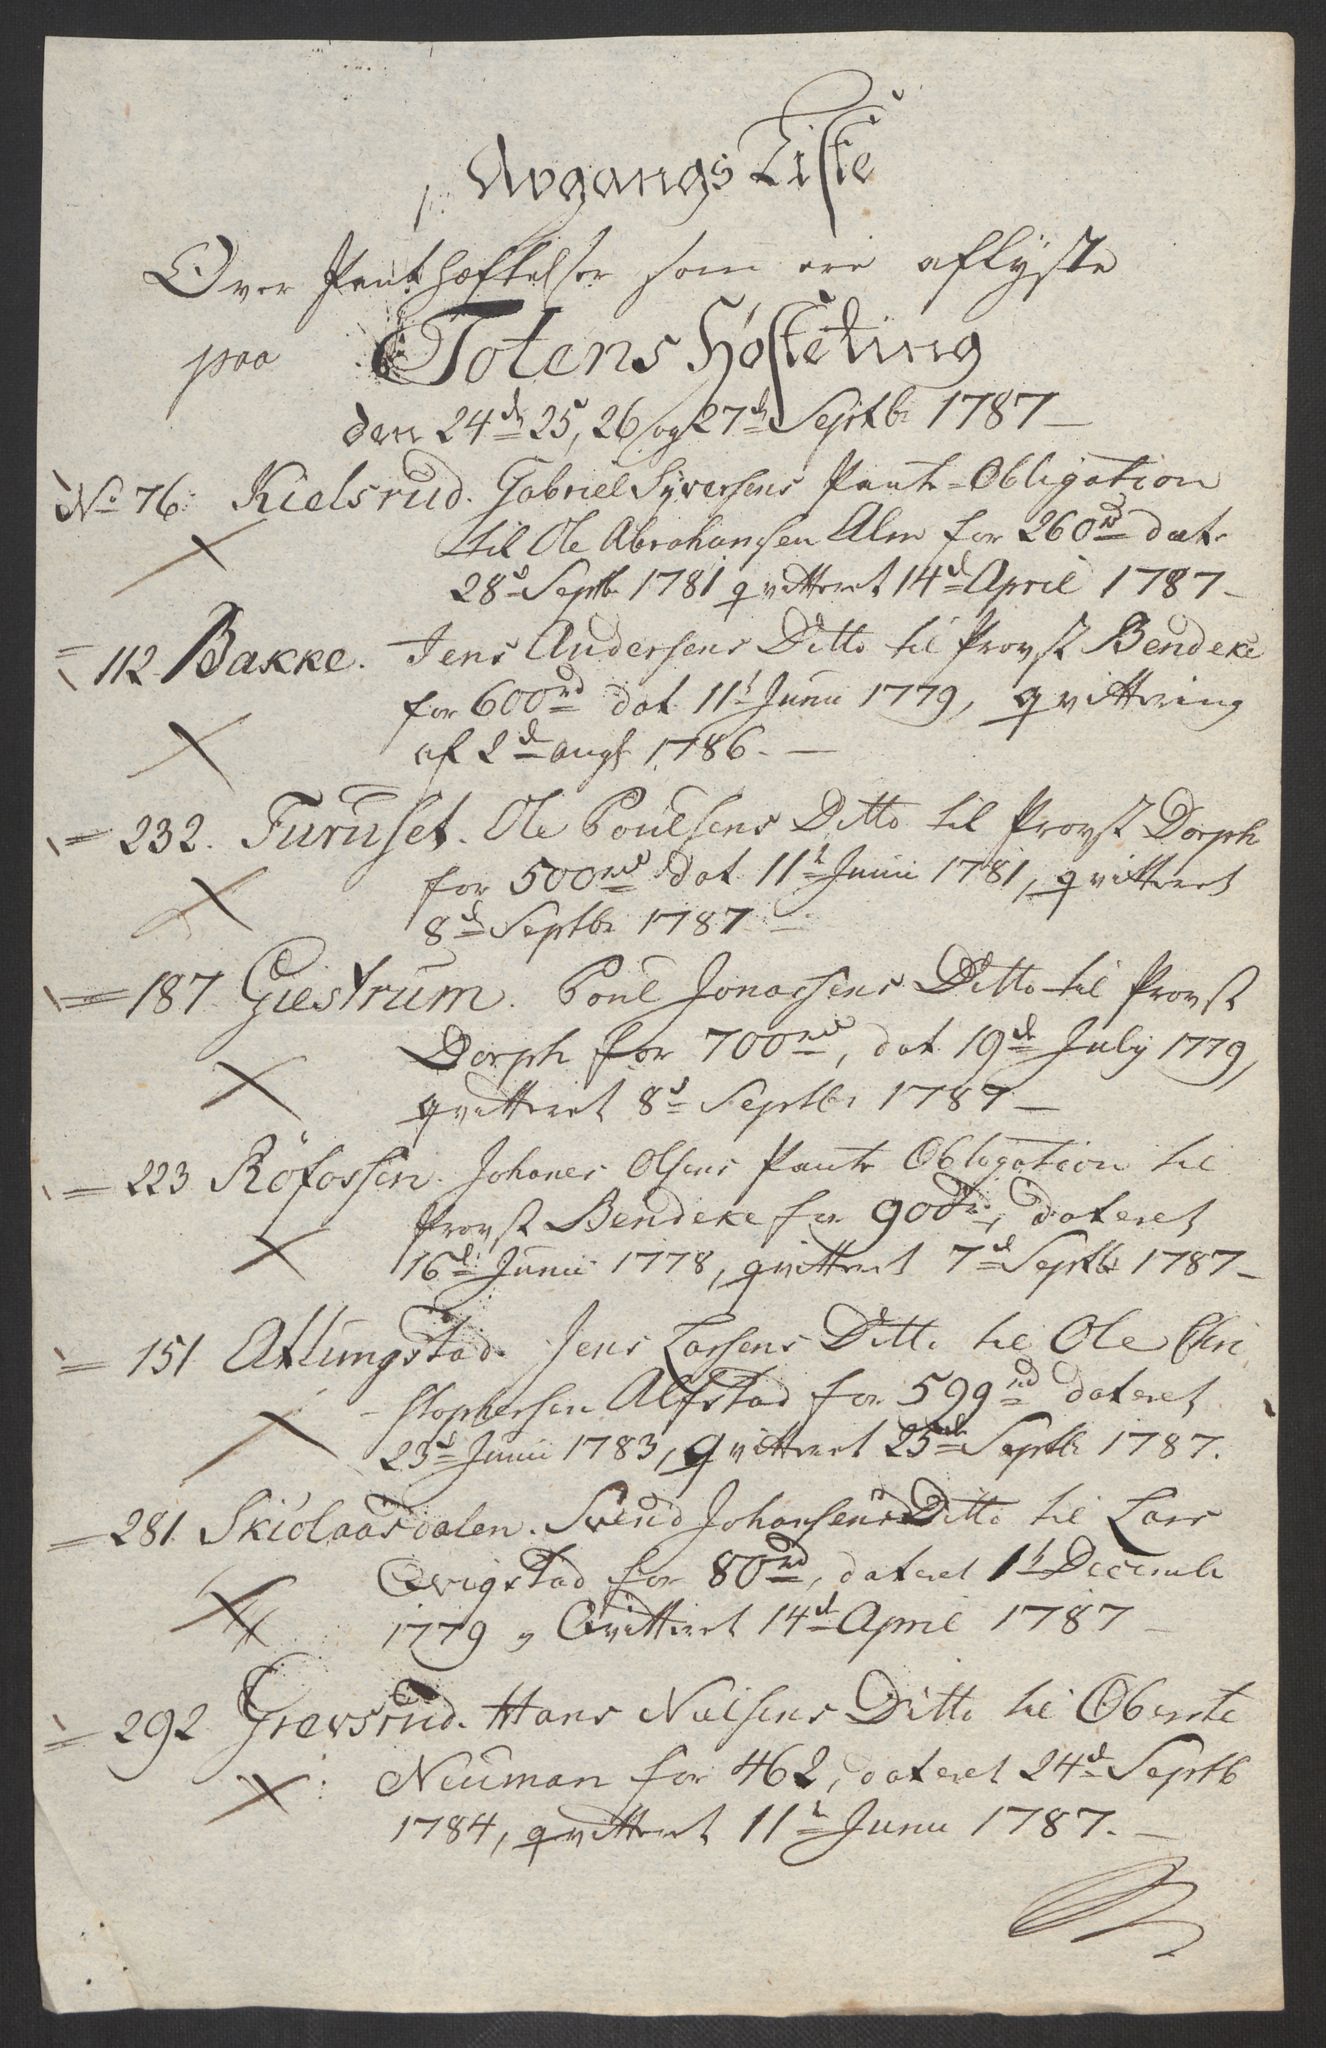 Avgangs Liste
Over Panthæftelser som ere aflyste
paa Totens Høsteting
den 24de 25, 26 og 27de Septbr 1787 —
No 76: Kielsrud. Gabriel Syversens Pante-Obligation
til Ole Abrahamsen Alm for 260rd dat.
28d Septbr 1781 qvitteret 14d April 1787 —
= 112 Bakke. Jens Andersens Ditto til Provst Bendeke
for 600rd dat 11t Junii 1779, qvittering
af 2d augt 1786. —
= 232. Furuset. Ole Poulsens Ditto til Provst Dorph
for 500rd dat 11t Junii 1781, qvitteret
8d Septbr 1787 —
= 187 Giestrum. Poul Jonassens Ditto til Provst
Dorph for 700rd, dat 19de July 1779,
qvitteret 8d Septbr 1787 —
= 223 Röfossen. Johanes Olsens Pante Obligation til
Provst Bendeke for 90rd, dateret
16d Junii 1778, qvitteret 7d Septbr 1787 —
= 151 Atlungstad. Jens Larsens Ditto til Ole Chri
stophersen Alfstad for 599rd dateret
23d Junii 1783, qvitteret 25de Septbr 1787.
= 281 Skiolaasdalen. Svend Johansens Ditto til Lars
Qvigstad for 80rd, dateret 1t Decembr
1779, Qvitteret 14d April 1787 —
= 292 Grevsrud. Hans Nielsens Ditto til Oberste
Neuman for 462, dateret 24d Septb
1784, qvitteret 11t Junii 1787. —